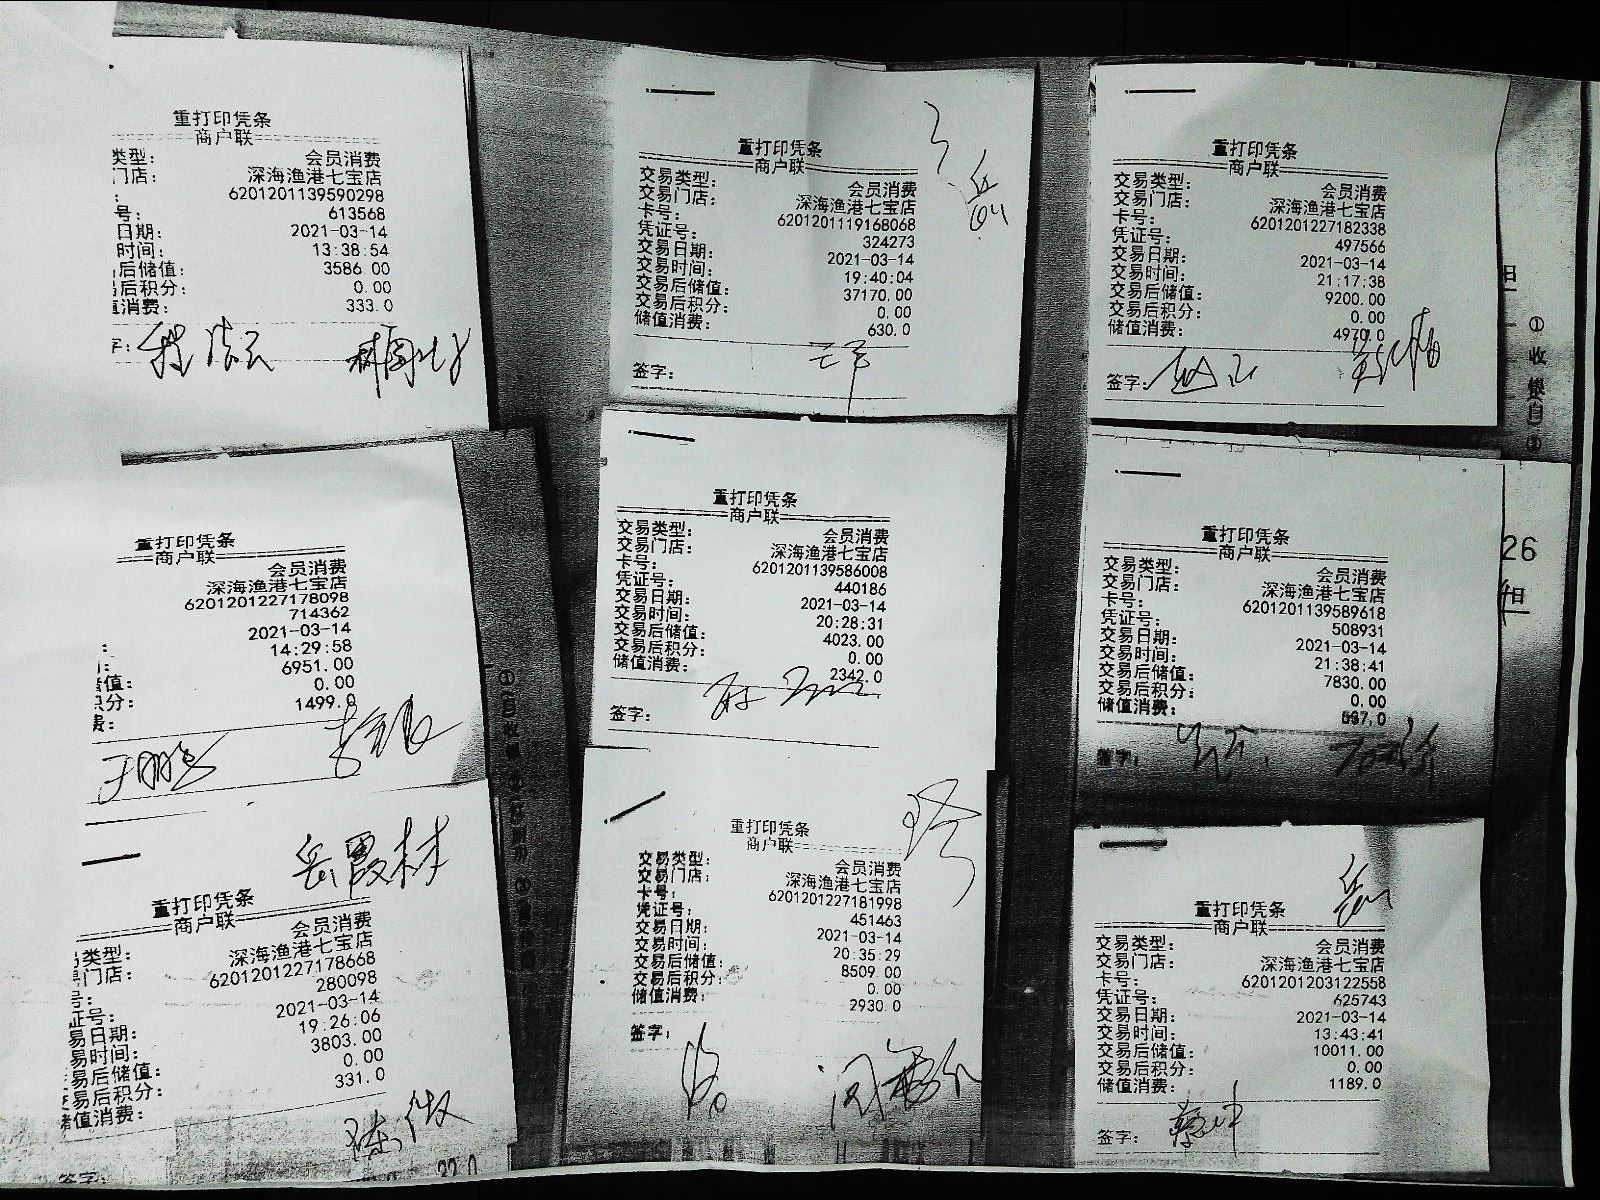 重打印凭条
商户联
类型： 会员消费
门店： 深海渔港七宝店
： 6201201139590298
号： 613568
日期： 2021-03-14
时间： 13:38:54
后储值： 3586.00
后积分： 0.00
值消费： 333.0
字：
重打印凭条
商户联
会员消费
深海渔港七宝店
6201201227178098
714362
2021-03-14
： 14:29:58
： 6951.00
值： 0.00
积分： 1499.0
费：
岳霞林
重打印凭条
商户联
类型： 会员消费
门店： 深海渔港七宝店
6201201227178668
号： 280098
证号： 2021-03-14
易日期： 19:26:06
易时间： 3803.00
易后储值： 0.00
易后积分： 331.0
储值消费：
签字：
重打印凭条
商户联
交易类型： 会员消费
交易门店： 深海渔港七宝店
卡号： 6201201119168068
凭证号： 324273
交易日期： 2021-03-14
交易时间： 19:40:04
交易后储值： 37170.00
交易后积分： 0.00
储值消费： 630.0
签字：
重打印凭条
商户联
交易类型： 会员消费
交易门店： 深海渔港七宝店
卡号： 6201201139586008
凭证号： 440186
交易日期： 2021-03-14
交易时间： 20:28:31
交易后储值： 4023.00
交易后积分： 0.00
储值消费： 2342.0
签字：
重打印凭条
商户联
交易类型： 会员消费
交易门店： 深海渔港七宝店
卡号： 6201201227181998
凭证号： 451463
交易日期： 2021-03-14
交易时间： 20:35:29
交易后储值： 8509.00
交易后积分： 0.00
储值消费： 2930.0
签字：
重打印凭条
商户联
交易类型： 会员消费
交易门店： 深海渔港七宝店
卡号： 6201201227182338
凭证号： 497566
交易日期： 2021-03-14
交易时间： 21:17:38
交易后储值： 9200.00
交易后积分： 0.00
储值消费： 4970.0
签字：
重打印凭条
商户联
交易类型： 会员消费
交易门店： 深海渔港七宝店
卡号： 6201201139589618
凭证号： 508931
交易日期： 2021-03-14
交易时间： 21:38:41
交易后储值： 7830.00
交易后积分： 0.00
储值消费：
签字：
重打印凭条
商户联
交易类型： 会员消费
交易门店： 深海渔港七宝店
卡号： 6201201203122558
凭证号： 625743
交易日期： 2021-03-14
交易时间： 13:43:41
交易后储值： 10011.00
交易后积分： 0.00
储值消费： 1189.0
签字：
26